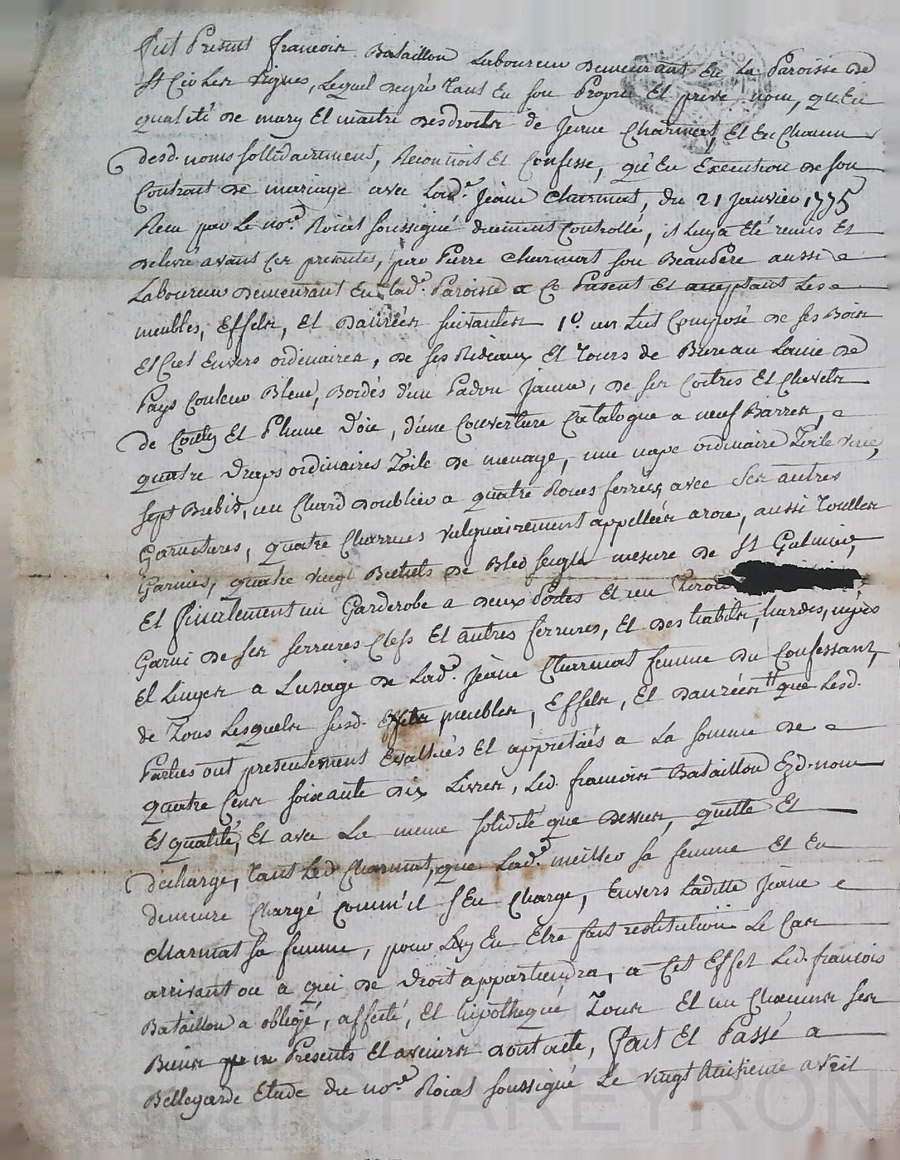 fut Present francois Bataillon Laboureur Demeurant En La Paroisse de
St Cir Les Vignes, Lequel degré Tant En son Propre Et privé nom, qu'En
qualité de mary Et maitre des droits de Jeane Charmat, Et En Chacun
desd. noms sollidairement, Reconnoit Et Confesse, qu'En Execution de son
Contrat de mariage avec Lade. Jeane Charmat, du 21 janvier 1775
Recu par Le nore. Roial soussigné duement Controllé, il luy a Eté remis Et
delivré avant Ces presentes, par Pierre Charmat son Beaupere aussi
Laboureur Demeurant En lade. Paroisse a Ce Present Et acceptant Les
meubles, Effets, Et Danréés suivantes 1o. un Lit Composé de ses Bois
Et Ciel Envers ordinaires, de ses Rideaux Et Tours de Bureau Laine de
Pays Couleur Bleue, Bordés d'un Padou Jaune, de ses Coitres Et Chevets
de Couty Et Plume d'oie, d'une Couverture Catalogue a neuf Barres,
quatre Draps ordinaires Toile de menage, une nape ordinaire Toile
sept Brebis, un Chard doublier a quatre Roues ferréés avec Ses autres
Garnitures, quatre Charrues vulguairement appelléés arore, aussi Touttes
Garnies, quatre vingt Bichets de Bled seigle mesure de St Galmier,
Et finalement un Garderobe a deux Portes Et un Tiroir
Garni de ses serrures Clefs Et autres ferrures, Et des habits, hardes,
Et Linges a Lusage de Lade. Jeane Charmat femme du Confessant,
de Tous Lesquels susd. meubles, Effets, Et Danréés que Lesd.
Parties ont presentement Evallués Et appretiés a La somme de
quatre Cens soixante dix Livres, Led. francois Bataillon Esd. nom
Et qualité, Et avec La meme solidité que Dessus, quitte Et
decharge, Tant Led. Charmat, que Lade. meiller sa femme Et En
demeure Chargé Comm'il s'En Charge, Envers Laditte Jeane
Charmat sa femme, pour Luy En Etre fait restitution Le Cas
arrivant ou a qui de Droit appartiendra, a Cet Effet Led. francois
Bataillon a obligé, affecté, Et hipothequé Tous Et un Chacuns ses
Biens Presents Et avenirs dont acte, fait Et Passé a
Bellegarde Etude du nore. Roial soussigné Le vingt avril
Pascal CHAREYRON